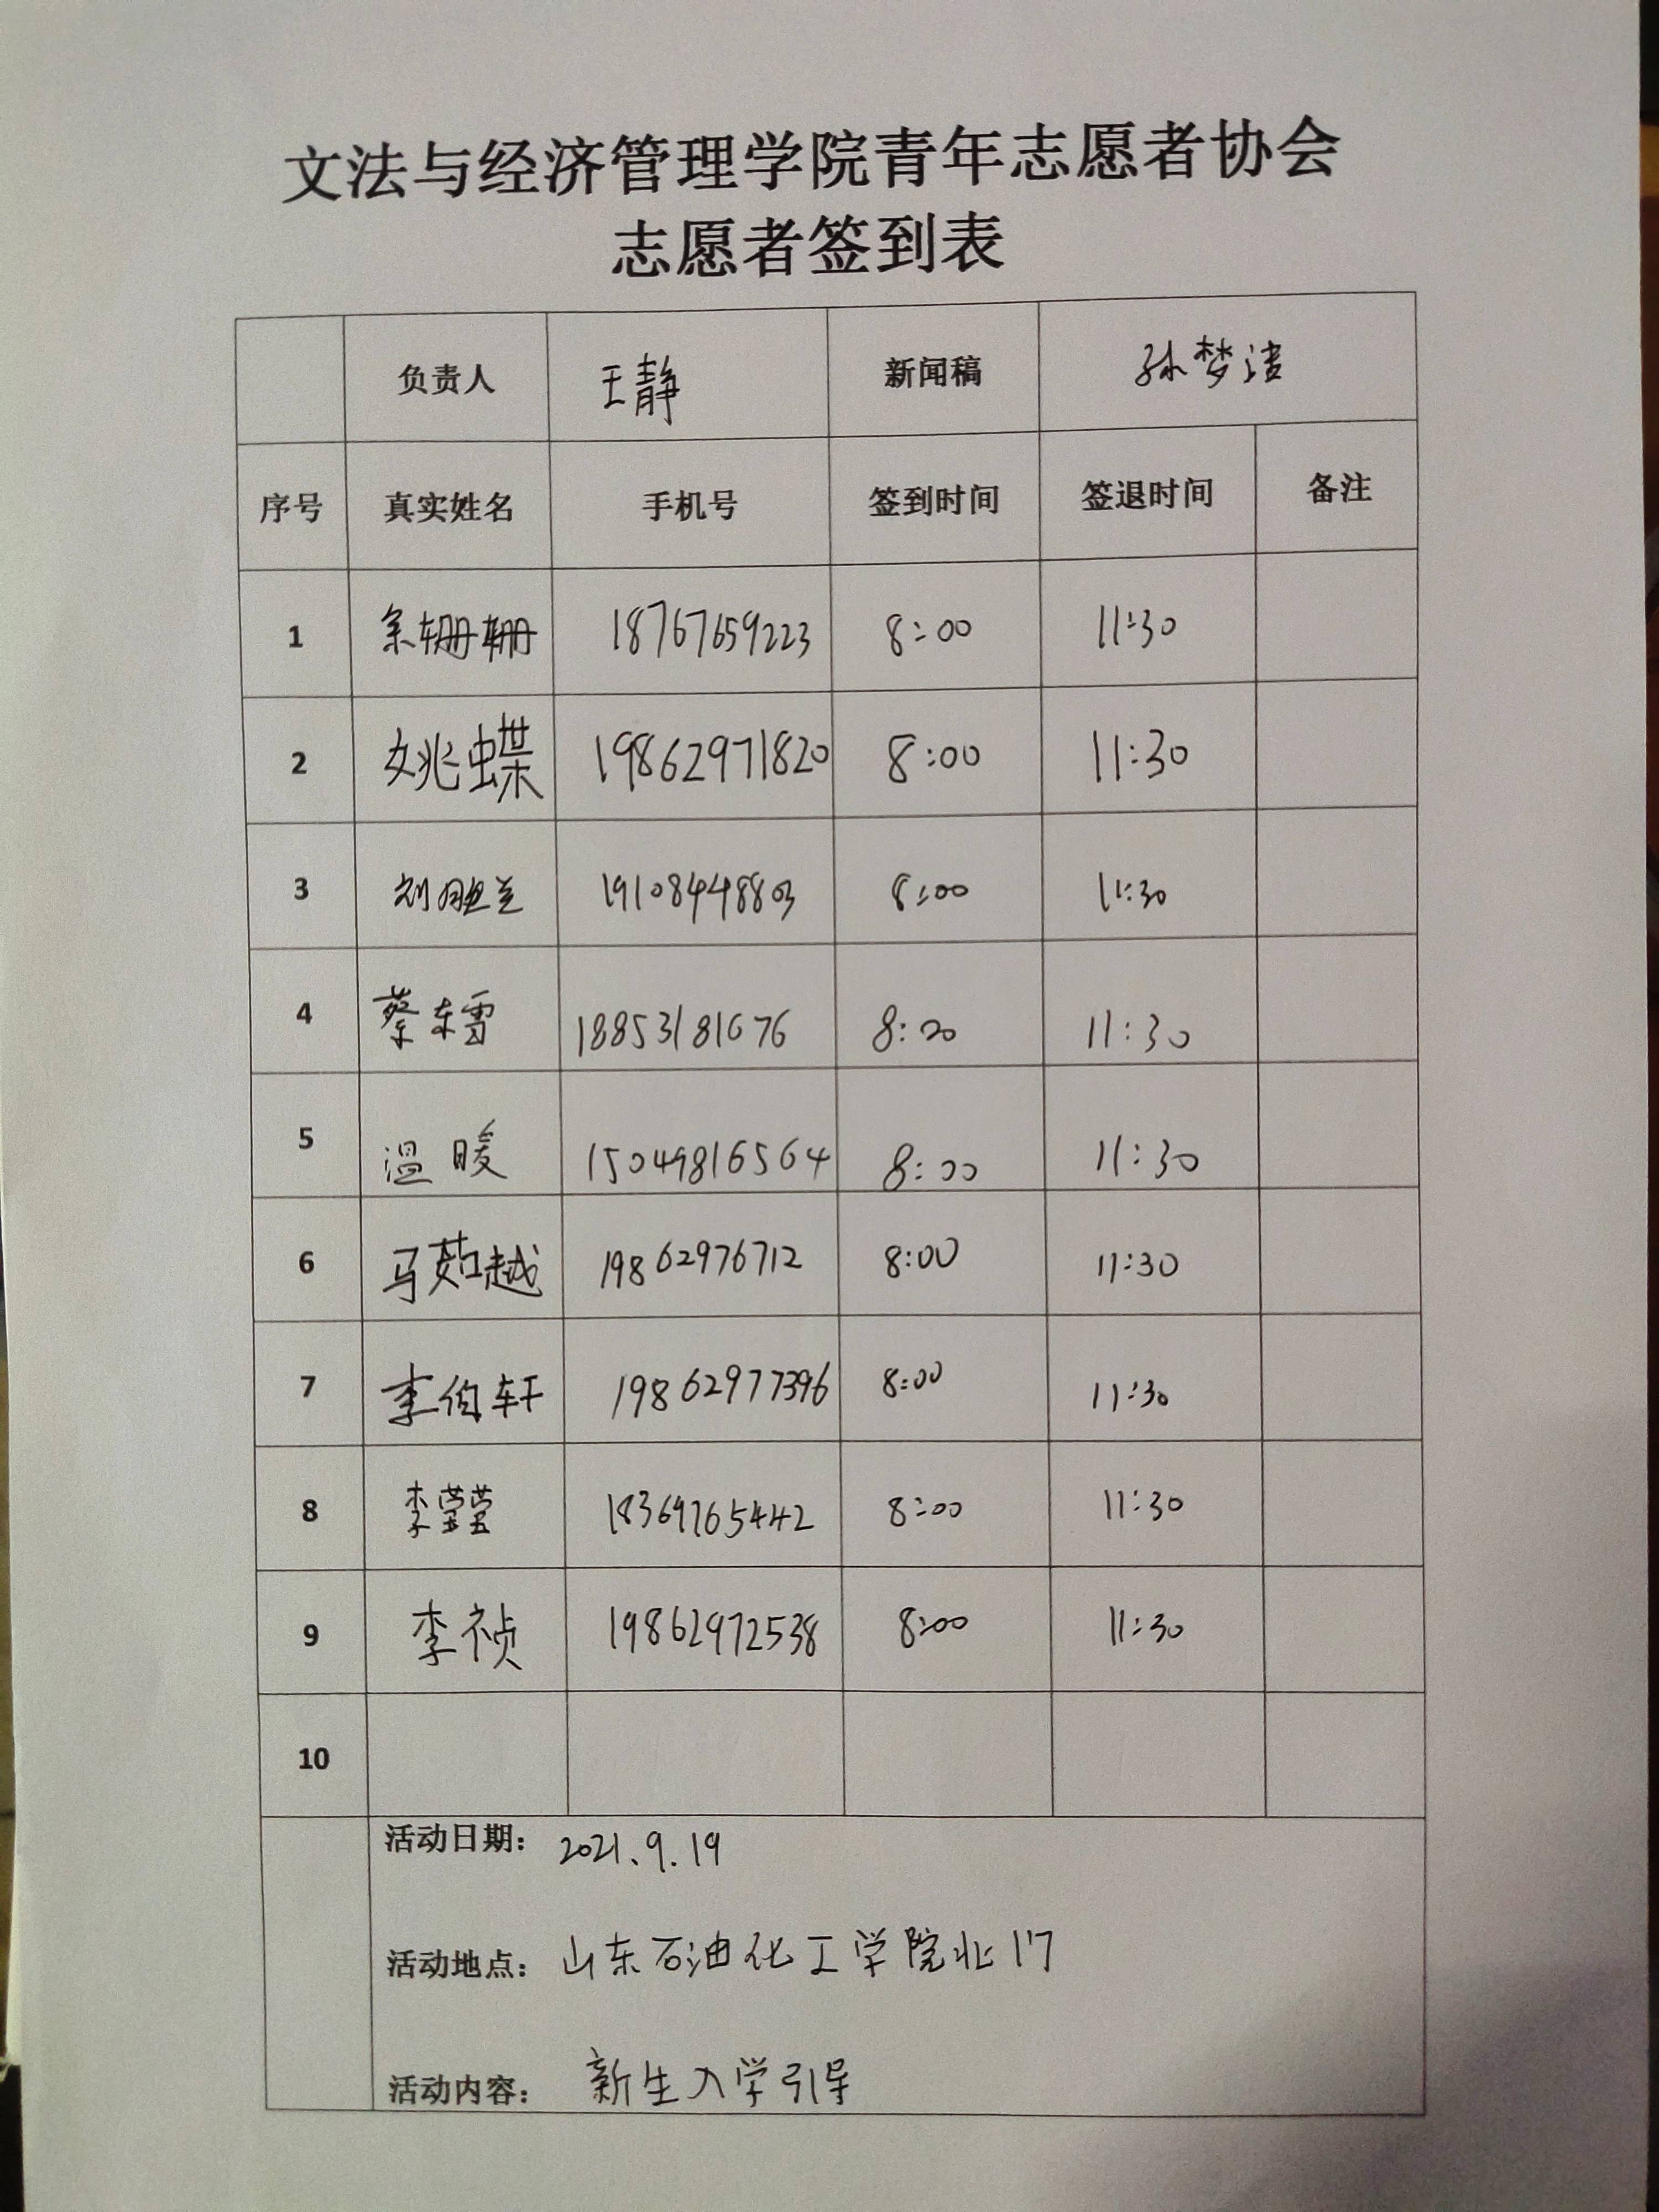 文法与经济管理学院青年志愿者协会
志愿者签到表
负责人 王静 新闻稿 孙梦洁
序号 真实姓名 手机号 签到时间 签退时间 备注
1 余珊珊 18767659223 8:00 11:30
2 姚蝶 19862971820 8:00 11:30
3 刘胆兰 19108448803 8:00 11:30
4 蔡东雪 18853181676 8:00 11:30
5 温暖 15049816564 8:00 11:30
6 马茹越 19862976712 8:00 11:30
7 李伯轩 19862977396 8:00 11:30
8 李莹莹 18369765442 8:00 11:30
9 李祯 19862972538 8:00 11:30
10
活动日期: 2021.9.19
活动地点: 山东石油化工学院北门
活动内容: 新生入学引导